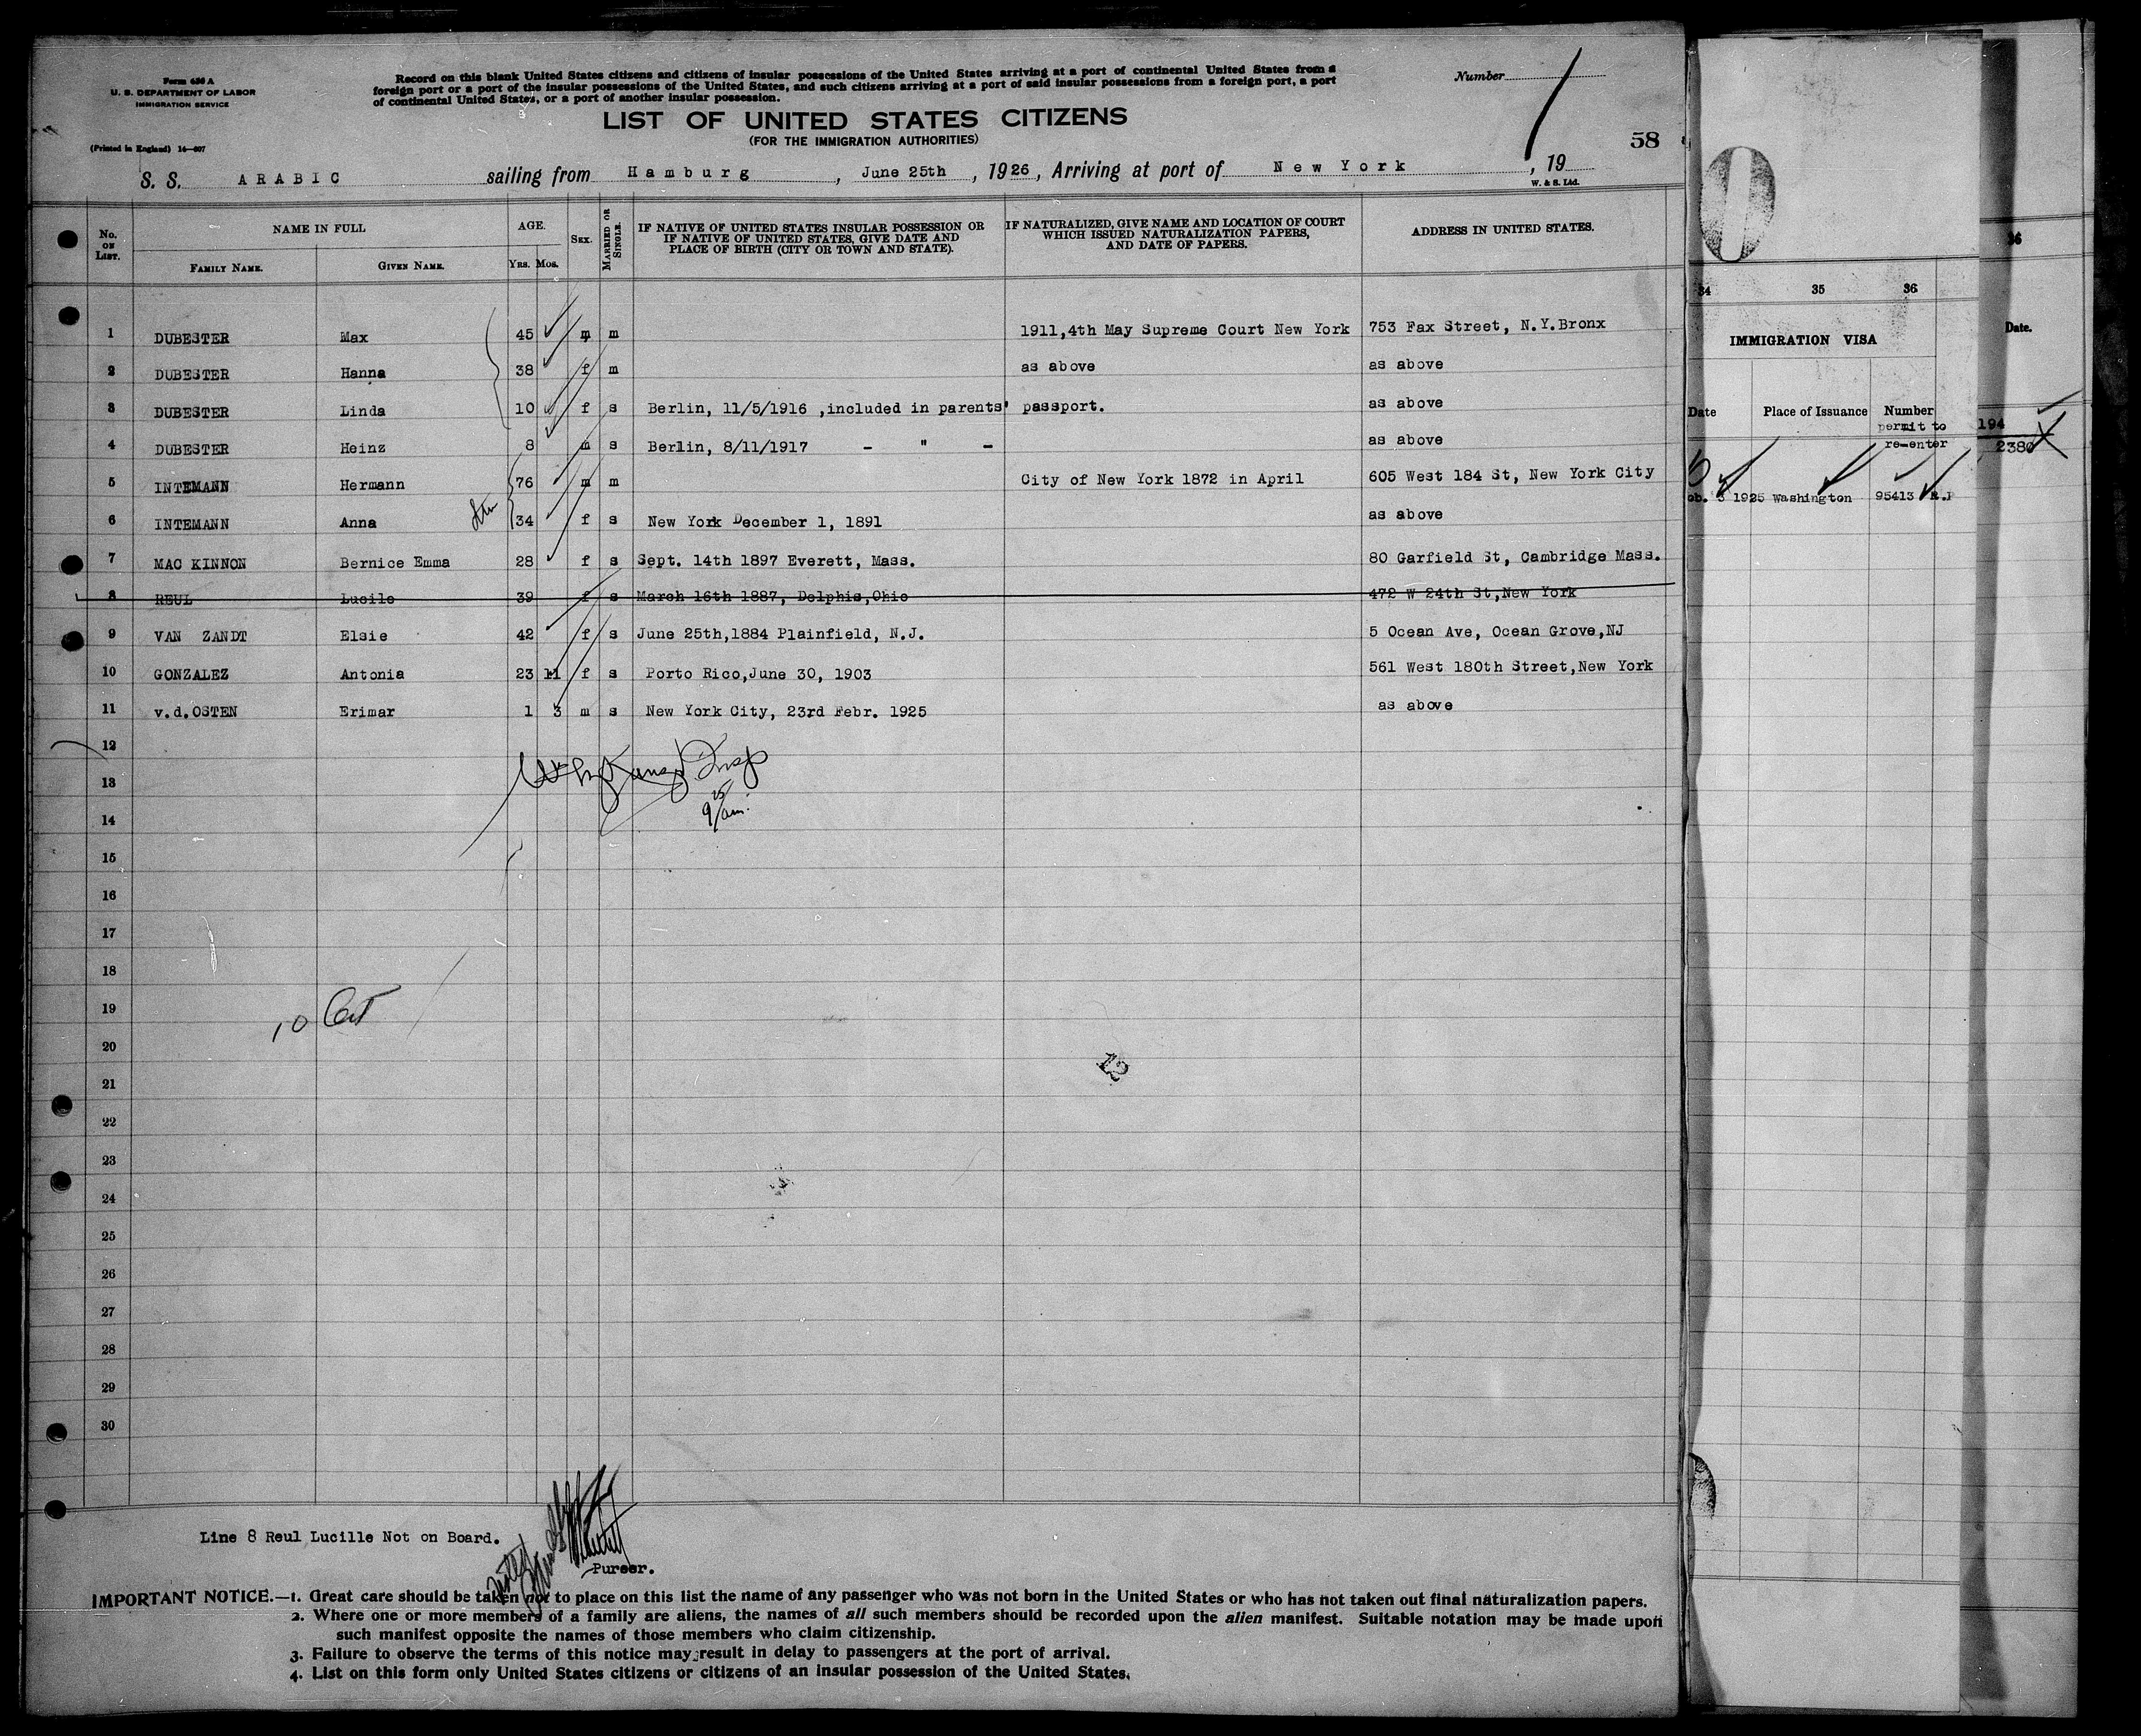 Form 630 A
U. S. DEPARTMENT OF LABOR
IMMIGRATION SERVICE
(Printed in England) 14—607
Record on this blank United States citizens and citizens of insular possessions of the United States arriving at a port of continental United States from a
foreign port or a port of the insular possessions of the United States, and such citizens arriving at a port of said insular possessions from a foreign port, a port
of continental United States, or a port of another insular possession.
Number
LIST OF UNITED STATES CITIZENS
(FOR THE IMMIGRATION AUTHORITIES)
58
S. S. ARABIC sailing from Hamburg, June 25th, 1926, Arriving at port of New York, 19
W. & S. Ltd.
No. ON LIST. NAME IN FULL AGE. SEX. MARRIED OR SINGLE. IF NATIVE OF UNITED STATES INSULAR POSSESSION OR IF NATIVE OF UNITED STATES, GIVE DATE AND PLACE OF BIRTH (CITY OR TOWN AND STATE). IF NATURALIZED, GIVE NAME AND LOCATION OF COURT WHICH ISSUED NATURALIZATION PAPERS, AND DATE OF PAPERS. ADDRESS IN UNITED STATES.
FAMILY NAME. GIVEN NAME. Yrs. Mos.
1 DUBESTER Max 45 m m 1911,4th May Supreme Court New York 753 Fax Street, N.Y.Bronx
2 DUBESTER Hanna 38 f m as above as above
3 DUBESTER Linda 10 f s Berlin, 11/5/1916 ,included in parents' passport. as above
4 DUBESTER Heinz 8 m s Berlin, 8/11/1917 - " - as above
5 INTEMANN Hermann 76 m m City of New York 1872 in April 605 West 184 St, New York City
6 INTEMANN Anna 34 f s New York December 1, 1891 as above
7 MAC KINNON Bernice Emma 28 f s Sept. 14th 1897 Everett, Mass. 80 Garfield St, Cambridge Mass.
8 REUL Lucile 39 f s March 16th 1887, Delphis,Ohio 472 W 24th St,New York
9 VAN ZANDT Elsie 42 f s June 25th,1884 Plainfield, N.J. 5 Ocean Ave, Ocean Grove,NJ
10 GONZALEZ Antonia 23 11 f s Porto Rico,June 30, 1903 561 West 180th Street,New York
11 v.d.OSTEN Erimar 1 3 m s New York City, 23rd Febr. 1925 as above
12
13
14
15
16
17
18
19
10
20
12
21
22
23
24
25
26
27
28
29
30
Line 8 Reul Lucille Not on Board.
Purser.
IMPORTANT NOTICE.—1. Great care should be taken not to place on this list the name of any passenger who was not born in the United States or who has not taken out final naturalization papers.
2. Where one or more members of a family are aliens, the names of all such members should be recorded upon the alien manifest. Suitable notation may be made upon
such manifest opposite the names of those members who claim citizenship.
3. Failure to observe the terms of this notice may result in delay to passengers at the port of arrival.
4. List on this form only United States citizens or citizens of an insular possession of the United States.
34 35 36
IMMIGRATION VISA
Date Place of Issuance Number
permit to
re-enter
3 1925 Washington 95413 R.P
36
Date.
194
2380